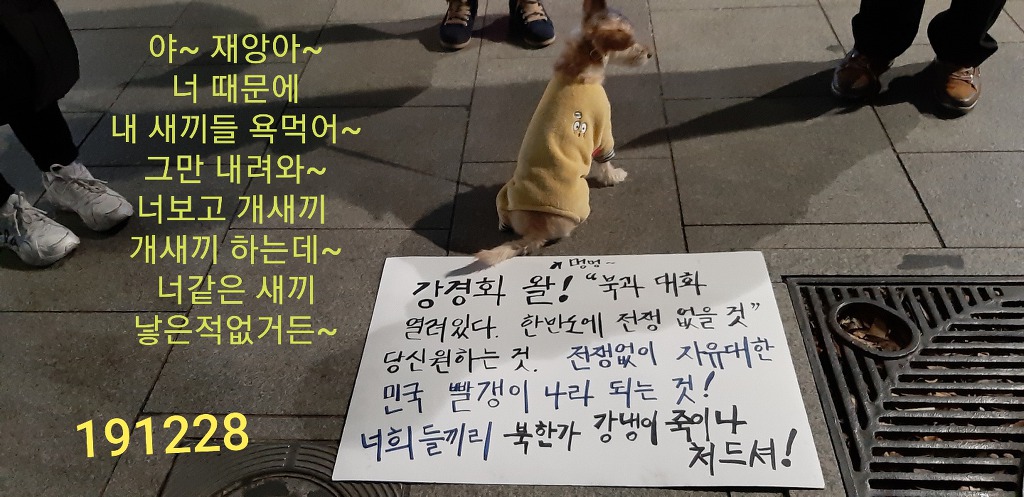 야~ 재앙아~
너 때문에
내 새끼들 욕먹어~
그만 내려와~
너보고 개새끼
개새끼 하는데~
너같은 새끼
낳은적없거든~
191228
멍멍~
강경화 왈! “북과 대화
열려있다. 한반도에 전쟁 없을 것”
당신원하는 것. 전쟁없이 자유대한
민국 빨갱이 나라 되는 것!
너희들끼리 북한가 강냉이 죽이나
처드셔!